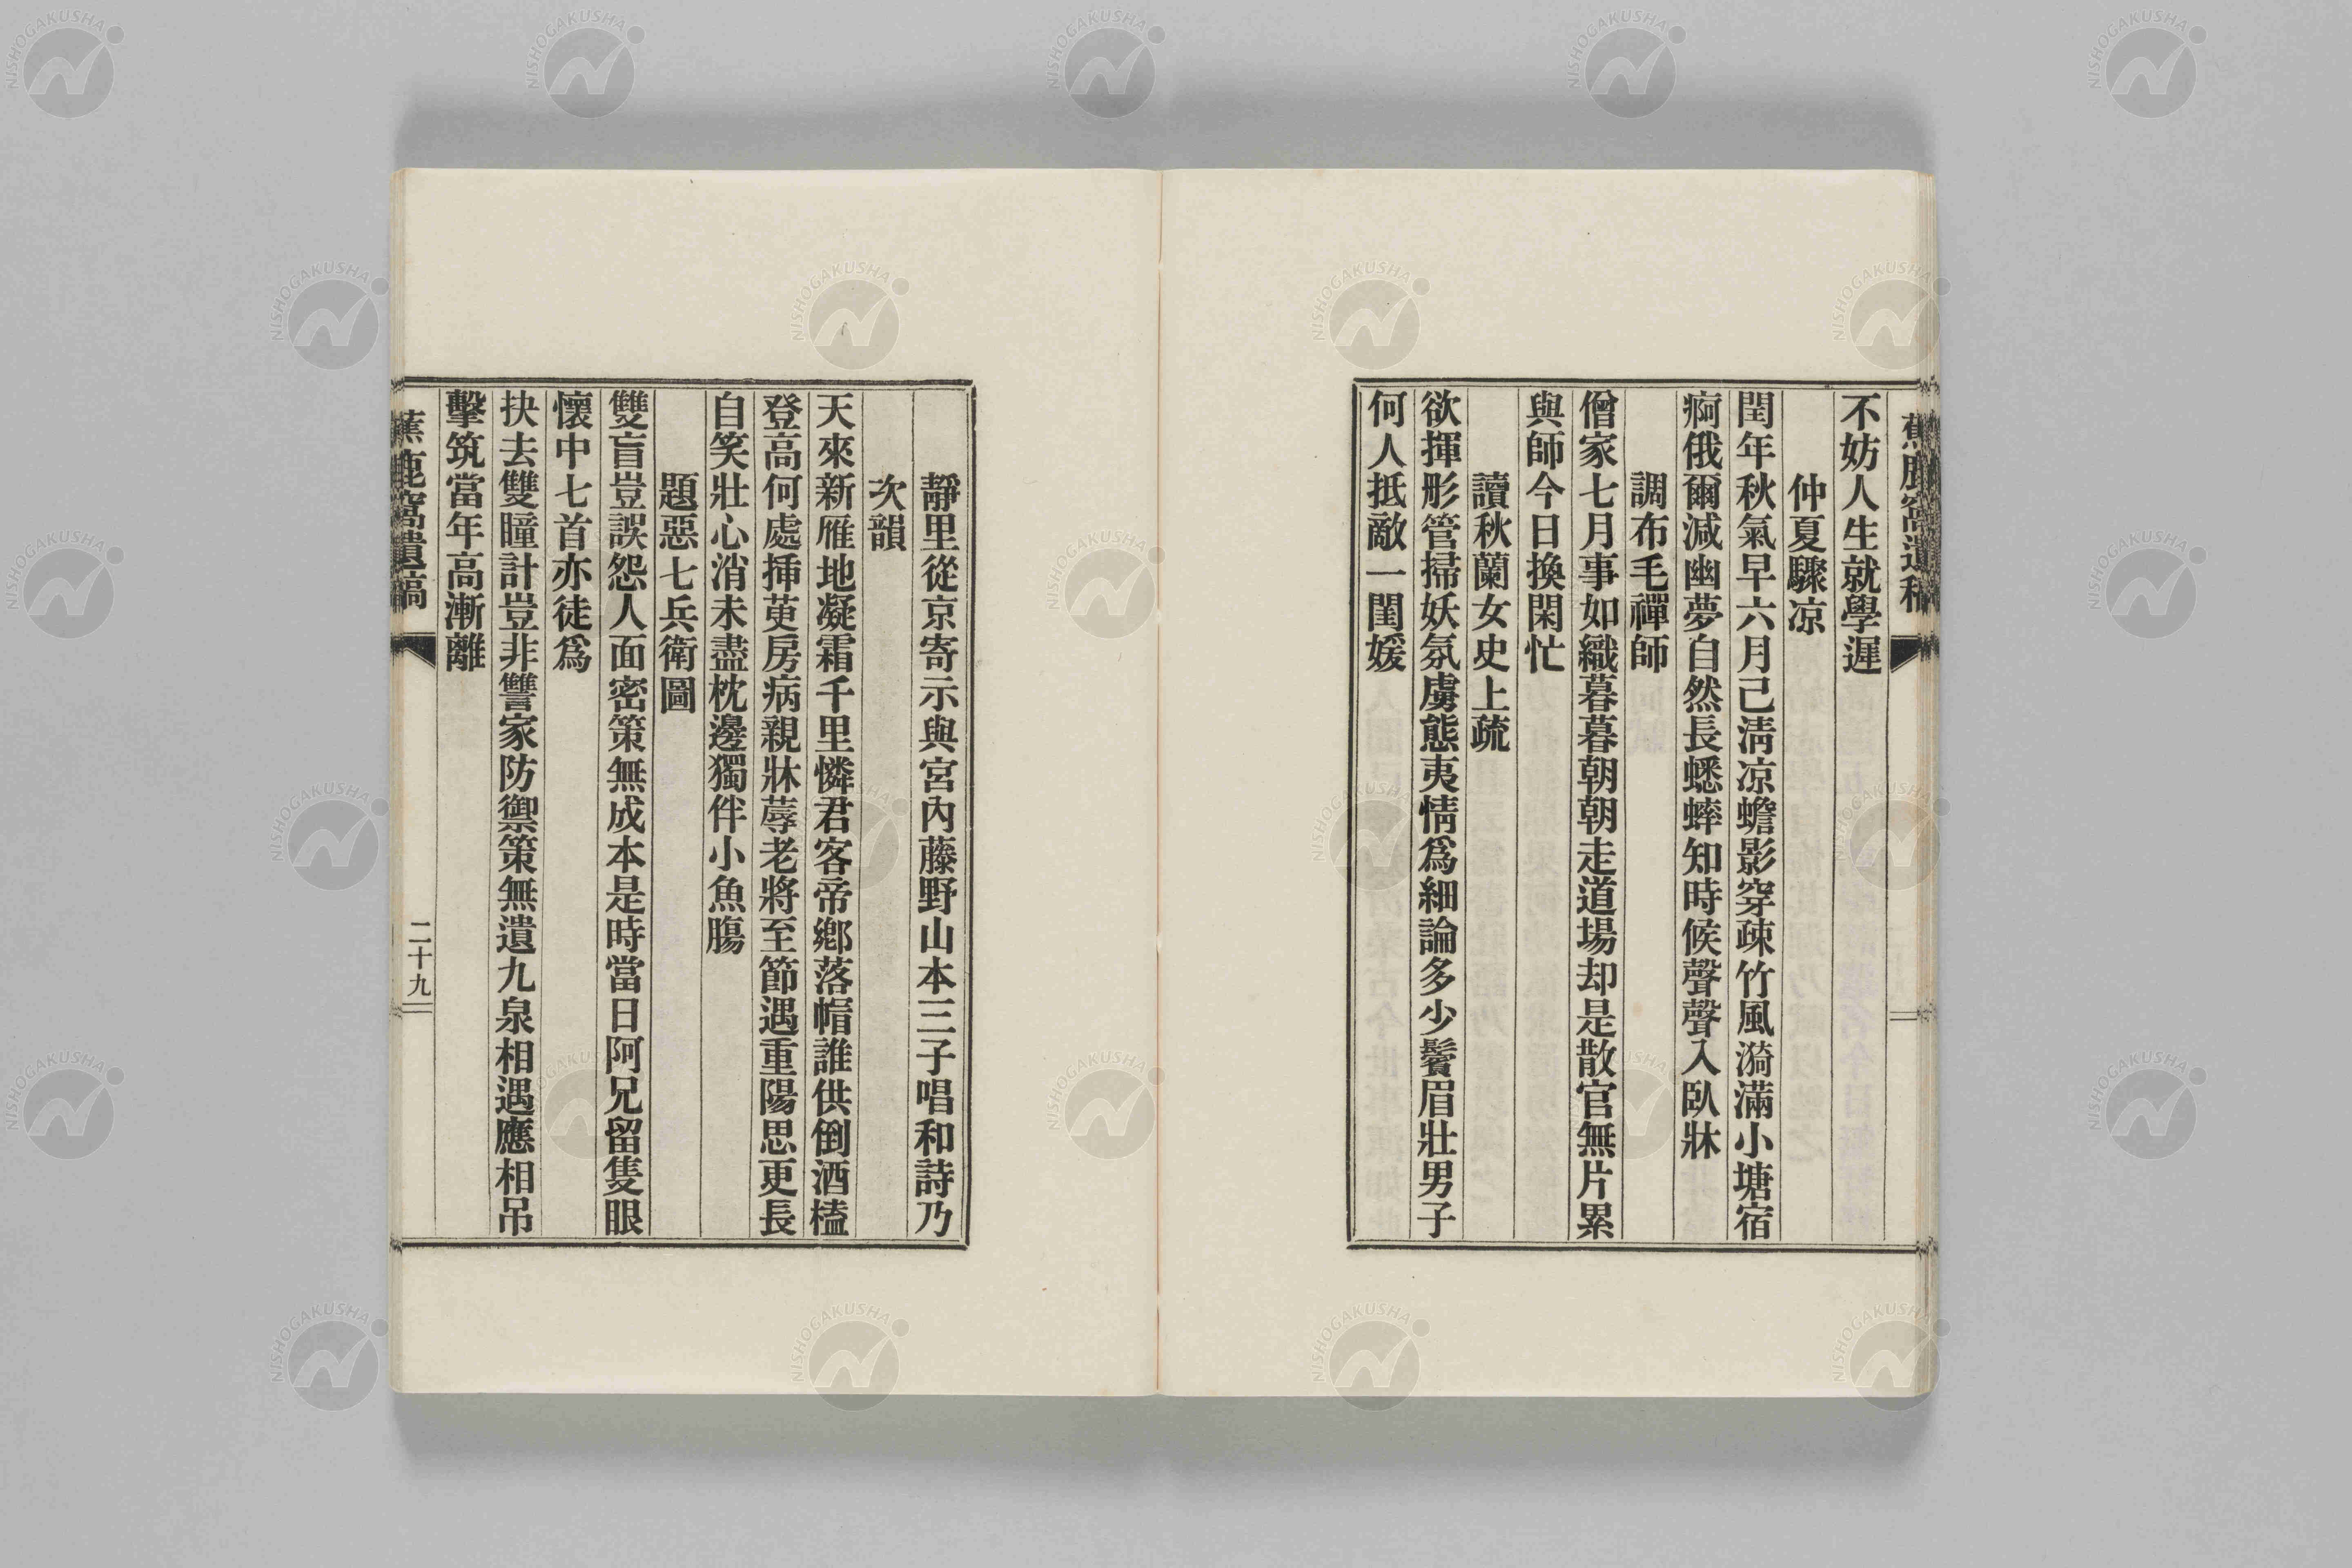 蕉鹿窩遺稿
不妨人生就學遲
仲夏驟凉
閏年秋氣早六月已淸凉蟾影穿疎竹風漪滿小塘宿
痾俄爾減幽夢自然長蟋蟀知時候聲聲入臥牀
調布毛禪師
僧家七月事如織暮暮朝朝走道場却是散官無片累
與師今日換閑忙
讀秋蘭女史上疏
欲揮彤管掃妖氛虜態夷情爲細論多少鬢眉壯男子
何人抵敵一閨媛
靜里從京寄示與宮內藤野山本三子唱和詩乃
次韻
天來新雁地凝霜千里憐君客帝鄕落帽誰供倒酒榼
登高何處揷茰房病親牀蓐老將至節遇重陽思更長
自笑壯心消未盡枕邊獨伴小魚膓
題惡七兵衞圖
雙盲豈誤怨人面密策無成本是時當日阿兄留隻眼
懷中七首亦徒爲
抉去雙瞳計豈非讐家防禦策無遺九泉相遇應相吊
擊筑當年高漸離
蕉鹿窩遺稿
二十九
NISHOGAKUSHA